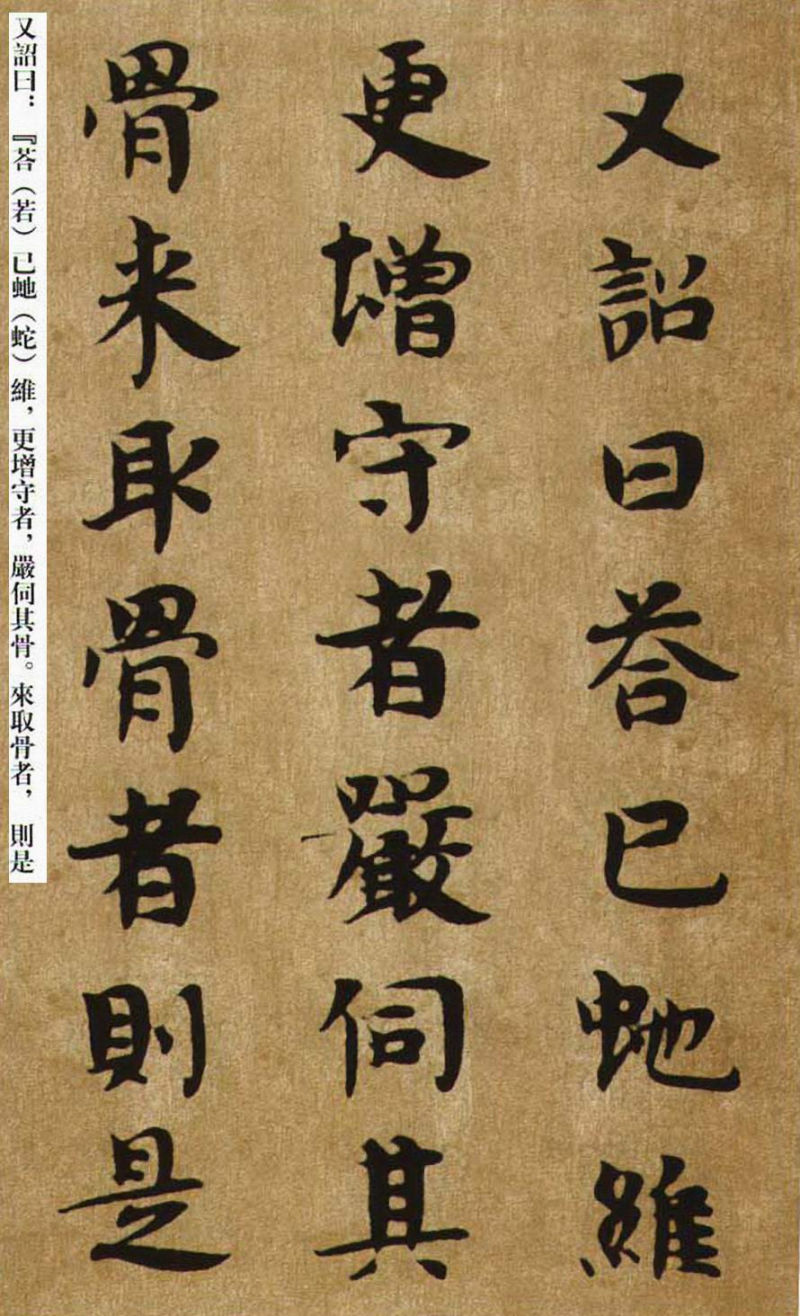 又詔曰荅已虵維
更增守者嚴伺其
骨来取骨者則是
又詔曰：『荅（若）已虵（蛇）維，更增守者，嚴伺其骨。來取骨者，則是